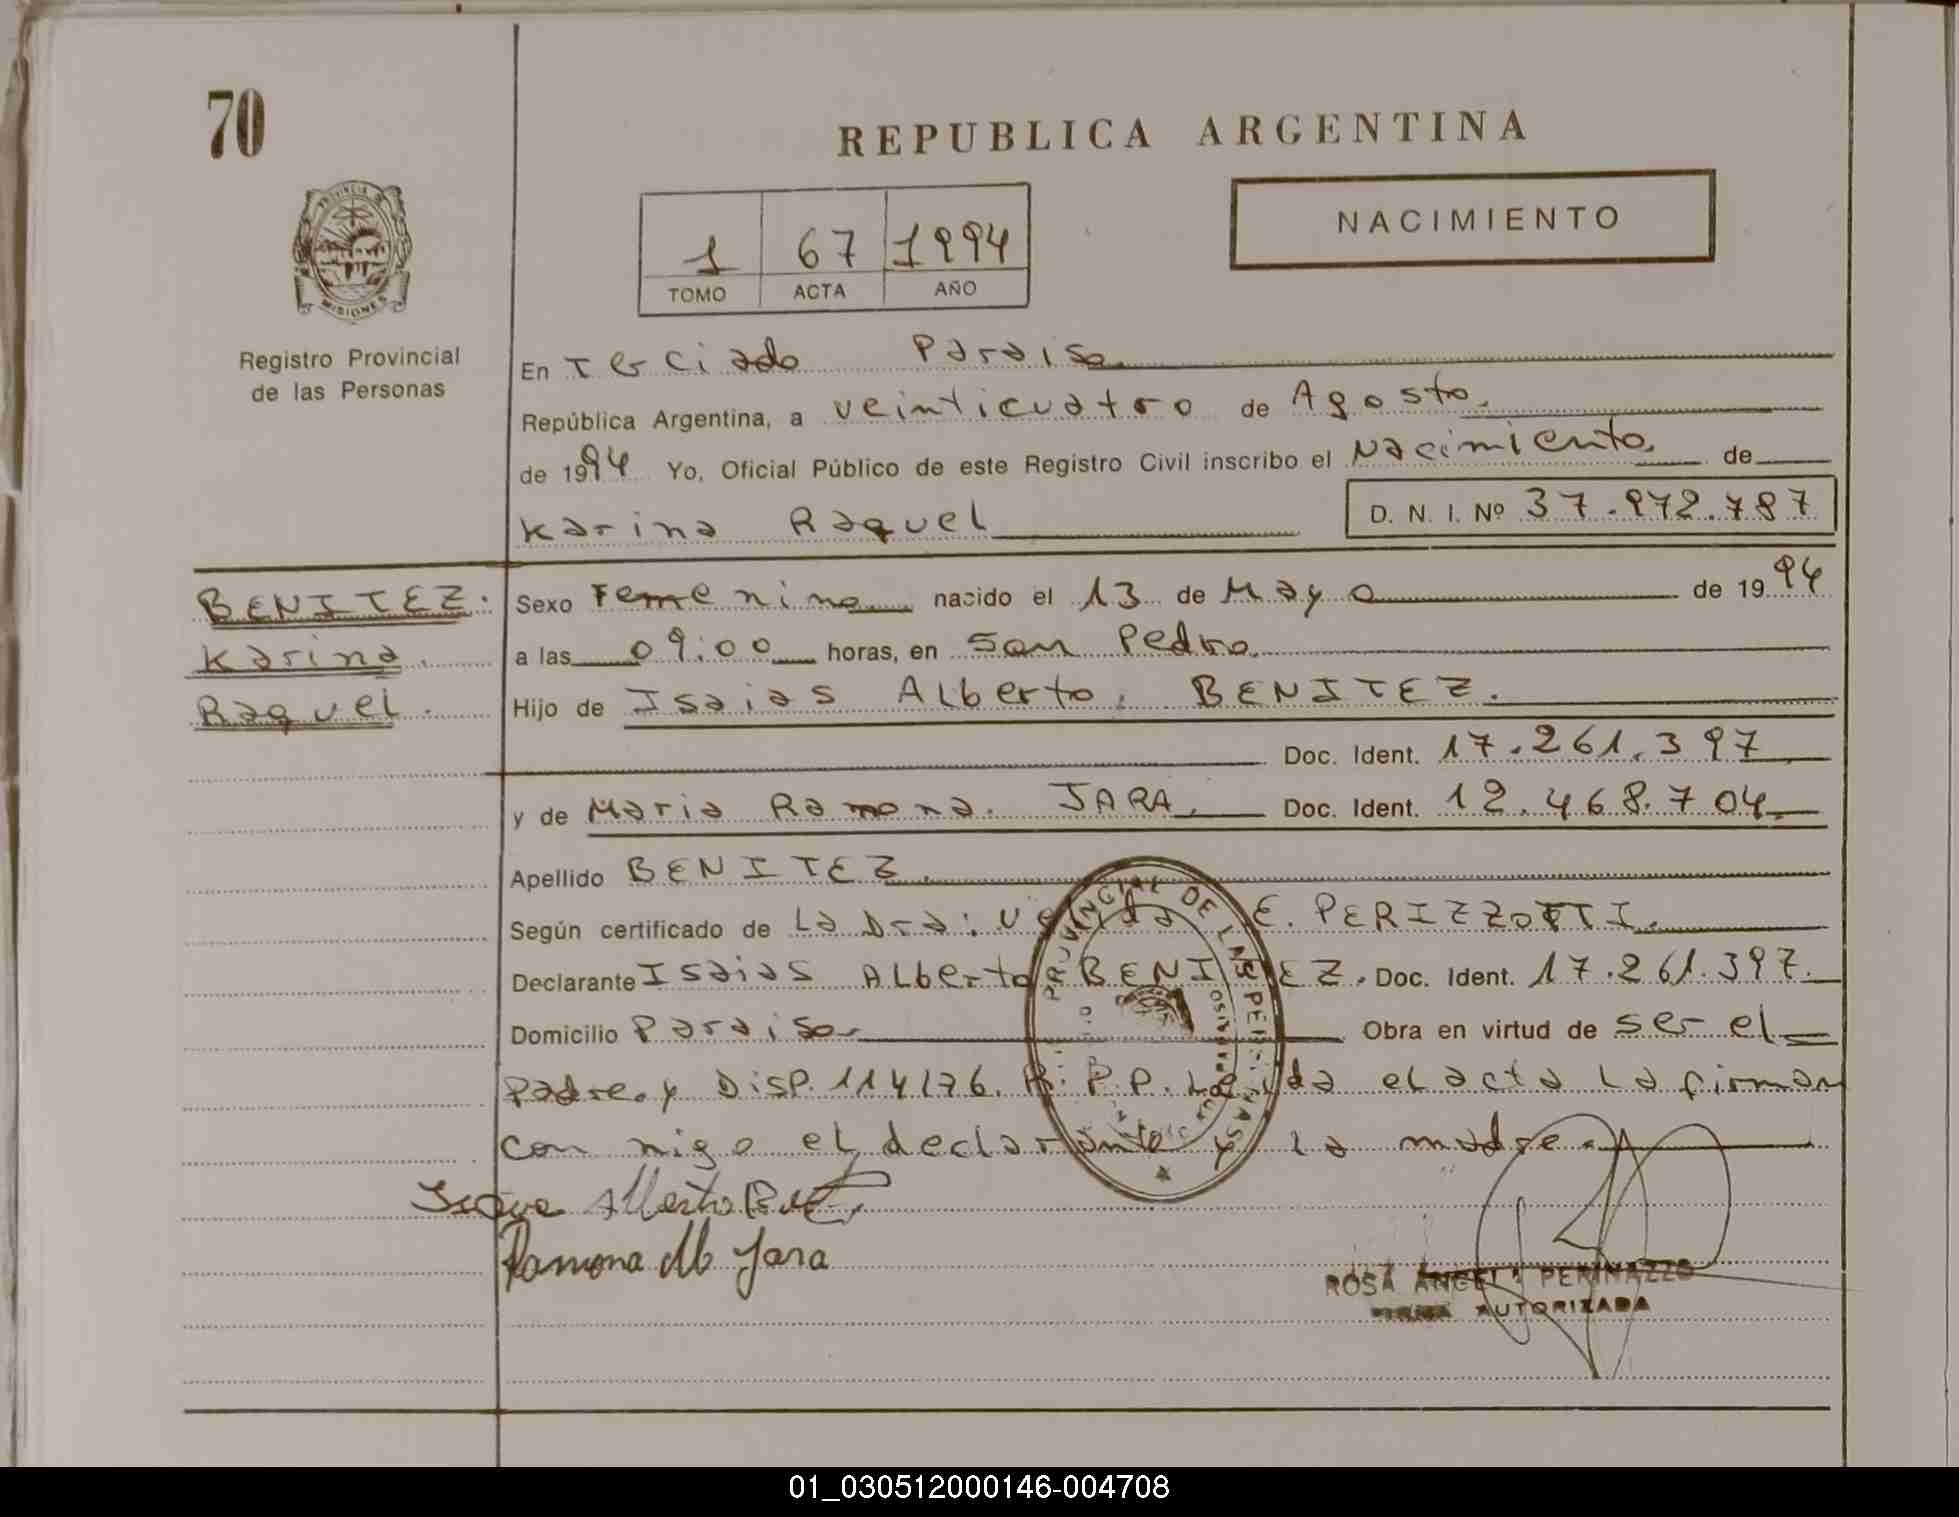 70
REPUBLICA ARGENTINA
NACIMIENTO
1 67 1994
TOMO ACTA AÑO
PROVINCIA DE
MISIONES
Registro Provincial
de las Personas
En Terciado Paraiso
República Argentina, a veinticuatro de Agosto.
de 1994 Yo, Oficial Público de este Registro Civil inscribo el Nacimiento de
Karina Raquel
D. N. I. Nº 37.972.787
BENITEZ.
Karina.
Raquel.
Sexo Femenino nacido el 13 de Mayo de 1994
a las 09:00 horas, en San Pedro.
Hijo de Isaias Alberto. BENITEZ.
Doc. Ident. 17.261.397
y de Maria Ramona. JARA. Doc. Ident. 12.468.704.
Apellido BENITEZ.
Según certificado de La Dra: E. PERIZZOTTI.
Declarante Isaias Alberto BENITEZ. Doc. Ident. 17.261.397.
Domicilio Paraiso Obra en virtud de ser el
Padre. y DISP. 114/76. R.P.P. Leida el acta la firman
con migo el declarante y la madre.
PROVINCIAL DE LAS PERSONAS
Alberto
Ramona M Jara
ROSA ANGELA PERINAZZO
FIRMA AUTORIZADA
01_030512000146-004708